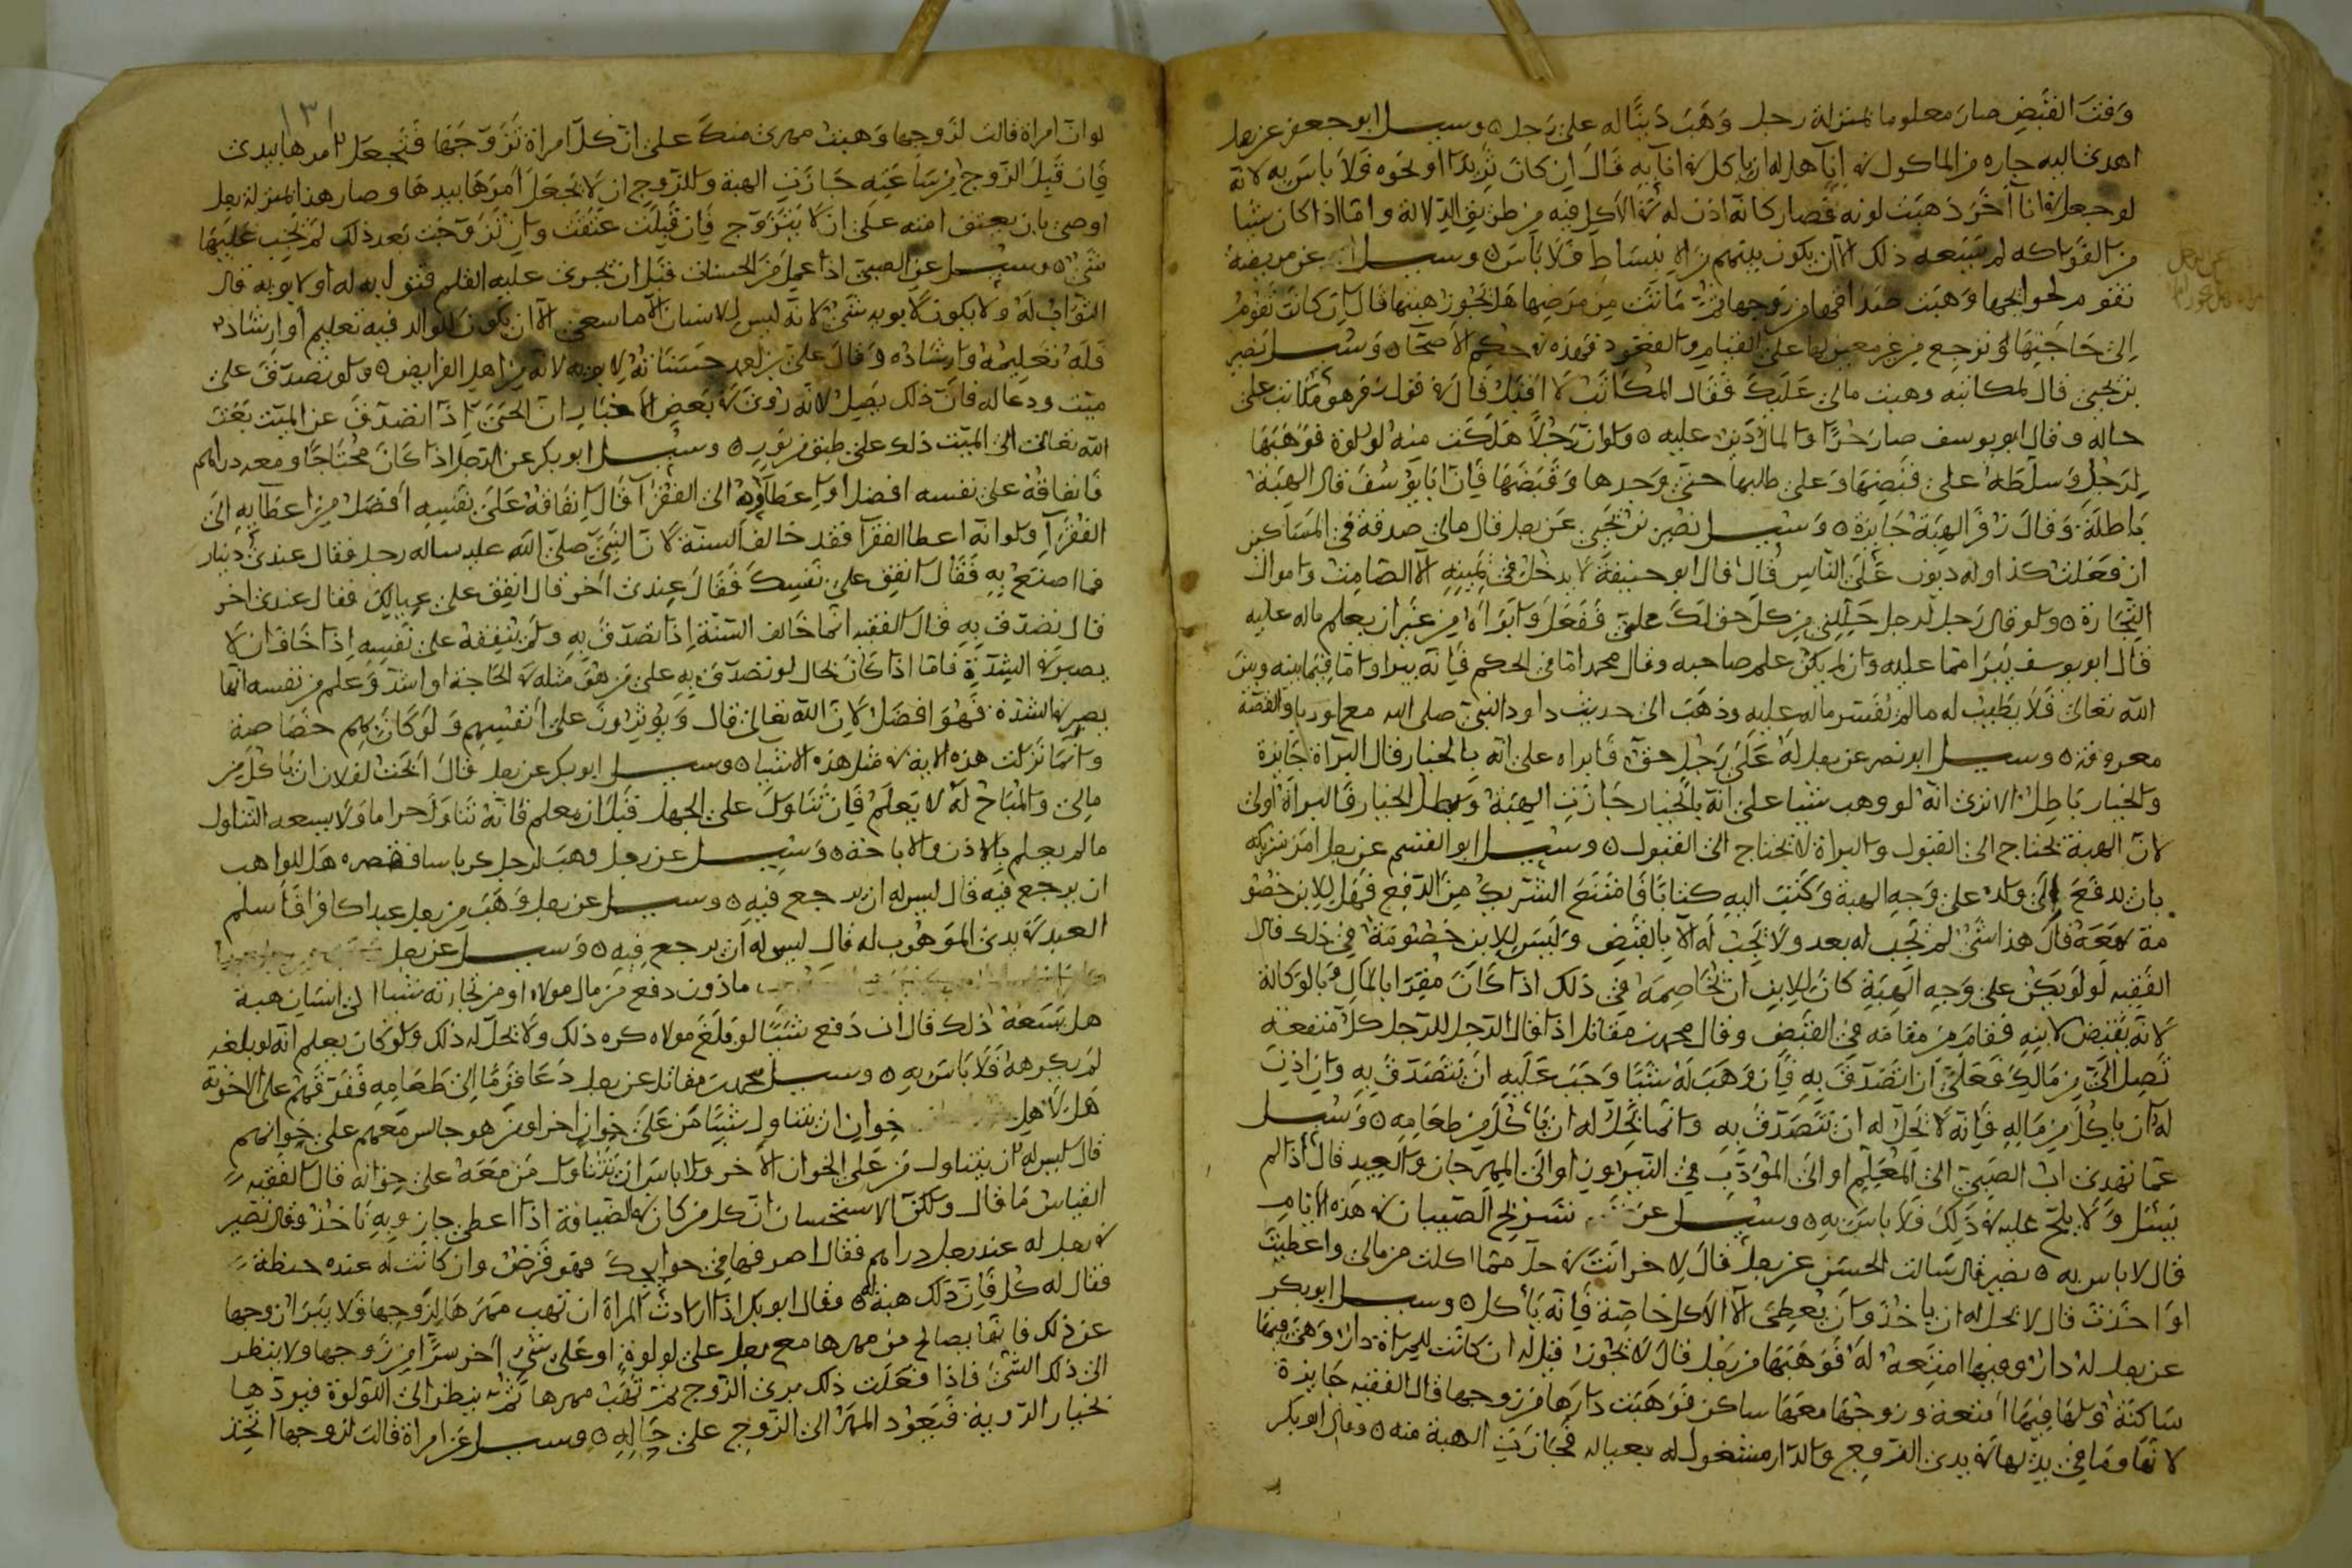 وقت القبض صار معلوما بمنزلة رجل وهب دينا له على رجل ٥ وسيل ابو جعفر عن رجل
اهدى اليه جاره من الماكول في انا هل له ان ياكل في انآيه قال ان كان ثريدا او نحوه فلا باس به لانه
لو جعل في انآ اخر ذهبت لونه فصار كانه اذن له في الاكل فيه من طريق الدلالة واما اذا كان شيا
من الفواكه لم يسعه ذلك الا ان يكون بينهم من الانبساط فلا باس ٥ وسيل عن مريضة
تقوم لحوايجها وهبت صداقها من زوجها ثم ماتت من مرضها هل تجوز هبتها قال ان كانت تقوم
الى حاجتها وترجع من غير معين لها على القيام والقعود فهذه في حكم الاصحا ٥ وسيل نصير
بن يحيى قال لمكاتبه وهبت مالي عليك فقال المكاتب لا اقبل قال في قول زفر هو مكاتب على
حاله وقال ابو يوسف صار حرا والمال دين عليه ٥ ولو ان رجلا هلكت منه لولوة فوهبها
لرجل وسلطه على قبضها وعلى طلبها حتى وجدها وقبضها فان ابا يوسف قال الهبة
باطلة وقال زفر الهبة جايزة ٥ وسيل نصير بن يحيى عن رجل قال مالي صدقة في المساكين
ان فعلت كذا وله ديون على الناس قال قال ابو حنيفة لا يدخل في يمينه الا الصامت واموال
التجارة ٥ ولو قال رجل لرجل حللني من كل حق لك علي ففعل وابراه من غير ان يعلم ماله عليه
قال ابو يوسف يبرا مما عليه وان لم يكن علم صاحبه وقال محمد اما في الحكم فانه يبرا واما فيما بينه وبين
الله تعالى فلا يطيب له ما لم يفسر ماله عليه وذهب الى حديث داود النبي صلى الله مع اوريا والقصة
معروفة ٥ وسيل ابو نصر عن رجل له على رجل حق فابراه على انه بالخيار قال البراة جايزة
والخيار باطل الا ترى انه لو وهب شيا على انه بالخيار جازت الهبة وبطل الخيار فالبراة اولى
لان الهبة تحتاج الى القبول والبراة لا تحتاج الى القبول ٥ وسيل ابو القسم عن رجل امر شريكه
بان يدفع الى ولده على وجه الهبة وكتب اليه كتابا فامتنع الشريك من الدفع فهل للابن خصو
مة معه قال هذا شي لم يجب له بعد ولا يجب له الا بالقبض وليس للابن خصومة في ذلك قال
الفقيه لو لم يكن على وجه الهبة كان للابن ان يخاصمه في ذلك اذا كان مقرا بالمال وبالوكالة
لانه يقبض لابنه فقام من مقامه في القبض وقال محمد بن مقاتل اذا قال الرجل للرجل كل منفعة
تصل الي من مالك فعلي ان اتصدق به فان وهب له شيئا وجب عليه ان يتصدق به وان اذن
له ان ياكل من ماله فانه لا يحل له ان يتصدق به وانما يحل له ان ياكل من طعامه ٥ وسيل
عما يهدى اب الصبي الى المعلم او الى المؤدب في النيروز او الى المهرجان والعيد قال اذا لم
يسئل ولا يلح عليه في ذلك فلا باس به ٥ وسيل عن تسريح الصبيان في هذه الايام
قال لا باس به ٥ نصير قال سالت الحسن عن رجل قال لاخر انت في حل مما اكلت من مالي واعطيت
او اخذت قال لا يحل له ان ياخذ وان يعطي الا الاكل خاصة فانه ياكل ٥ وسيل ابو بكر
عن رجل له دار وفيها امتعة له فوهبها من رجل قال لا يجوز قيل له ان كانت للمراة دار وهي فيها
ساكنة ولها فيها امتعة وزوجها معها ساكن فوهبت دارها من زوجها قال الفقيه جايزة
لانها وما في يديها في يدي الزوج والدار مشغول له بعياله فجازت الهبة منه ٥ وقال ابو بكر
١٣١
لو ان امراة قالت لزوجها وهبت مهري منك على ان كل امراة تزوجها فتجعل امرها بيدي
فان قبل الزوج من ساعته جازت الهبة وللزوج ان لا يجعل امرها بيدها وصار هذا بمنزلة رجل
اوصى بان يعتق امته على ان لا يتزوج فان قبلت عتقت وان تزوجت بعد ذلك لم يجب عليها
شي ٥ وسيل عن الصبي اذا عمل من الحسنات قبل ان يجرى عليه القلم فثوابه له او لابويه قال
الثواب له ولا يكون لابويه شي لانه ليس للانسان الا ما سعى الا ان يكون للوالد فيه تعليم او ارشاد
فله تعليمه وارشاده وقال علي بن احمد حسناته لابويه لانه من اهل الفرايض ٥ ولو تصدق على
ميت ودعا له فان ذلك يصل لانه روى في بعض الاخبار ان الحي اذا تصدق عن الميت بعث
الله تعالى الى الميت ذلك على طبق من نور ٥ وسيل ابو بكر عن الرجل اذا كان محتاجا ومعه دراهم
فانفاقه على نفسه افضل او اعطاوه الى الفقرا قال انفاقه على نفسه افضل من اعطايه الى
الفقرا ولو انه اعطا الفقرا فقد خالف السنة لان النبي صلى الله عليه ساله رجل فقال عندي دينار
فما اصنع به فقال انفق على نفسك فقال عندي اخر قال انفق على عيالك فقال عندي اخر
قال تصدق به قال الفقيه انما خالف السنة اذا تصدق به ولم ينفقه على نفسه اذا خاف ان لا
يصبر في الشدة فاما اذا كان بحال لو تصدق به على من هو مثله في الحاجة او اشد وعلم من نفسه انها
يصبر في الشدة فهو افضل لان الله تعالى قال ويؤثرون على انفسهم ولو كان بهم خصاصة
وانما نزلت هذه الاية في مثل هذه الاشيا ٥ وسيل ابو بكر عن رجل قال ابحت لفلان ان ياكل من
مالي والمباح له لا يعلم فان تناول على الجهل قبل ان يعلم فانه تناول حراما ولا يسعه التناول
ما لم يعلم بالاذن والاباحة ٥ وسيل عن رجل وهب لرجل كرباسا فقصره هل للواهب
ان يرجع فيه قال ليس له ان يرجع فيه ٥ وسيل عن رجل وهب من رجل عبدا كافرا فاسلم
العبد في يدي الموهوب له قال ليس له ان يرجع فيه ٥ وسيل عن رجل
ماذون دفع من مال مولاه او من تجارته شيا الى انسان هبة
هل يسعه ذلك قال ان دفع شيئا لو بلغ مولاه كره ذلك ولا يحل له ذلك ولو كان يعلم انه لو بلغه
لم يكرهه فلا باس به ٥ وسيل محمد بن مقاتل عن رجل دعا قوما الى طعامه ففرقهم على الاخونة
هل لاهل خوان ان يتناول شيئا من على خوان اخر او من هو جالس معهم على خوانهم
قال ليس له ان يتناول من على الخوان الاخر ولا باس ان يتناول من معه على خوانه قال الفقيه
القياس ما قال ولكن الاستحسان ان كل من كان في الضيافة اذا اعطى جاز وبه ناخذ وقال نصير
في رجل له عند رجل دراهم فقال اصرفها في حوايجك فهو قرض وان كانت له عنده حنطة
فقال له كل فان ذلك هبة له ٥ وقال ابو بكر اذا ارادت المراة ان تهب مهرها لزوجها فلا يبرا زوجها
عن ذلك فانها يصالح من مهرها مع رجل على لولوة او على شي اخر سرا من زوجها ولا ينظر
الى ذلك الشي فاذا فعلت ذلك بري الزوج ثم تهب مهرها ثم ينظر الى اللولوة فيردها
بخيار الروية فيعود المهر الى الزوج على حاله ٥ وسيل عن امراة قالت لزوجها اتخذ